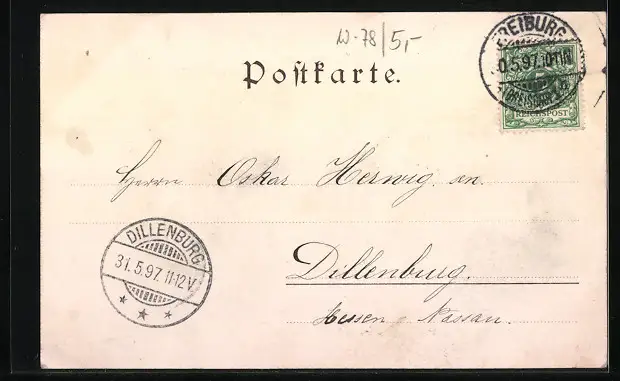 W-78/5,-
Postkarte.
FREIBURG
0.5.97.
(BREISGAU)
REICHSPOST
Herrn Oskar Herwig sen.
DILLENBURG
31.5.97. 11-12V.
Dillenburg.
Hessen-Nassau.